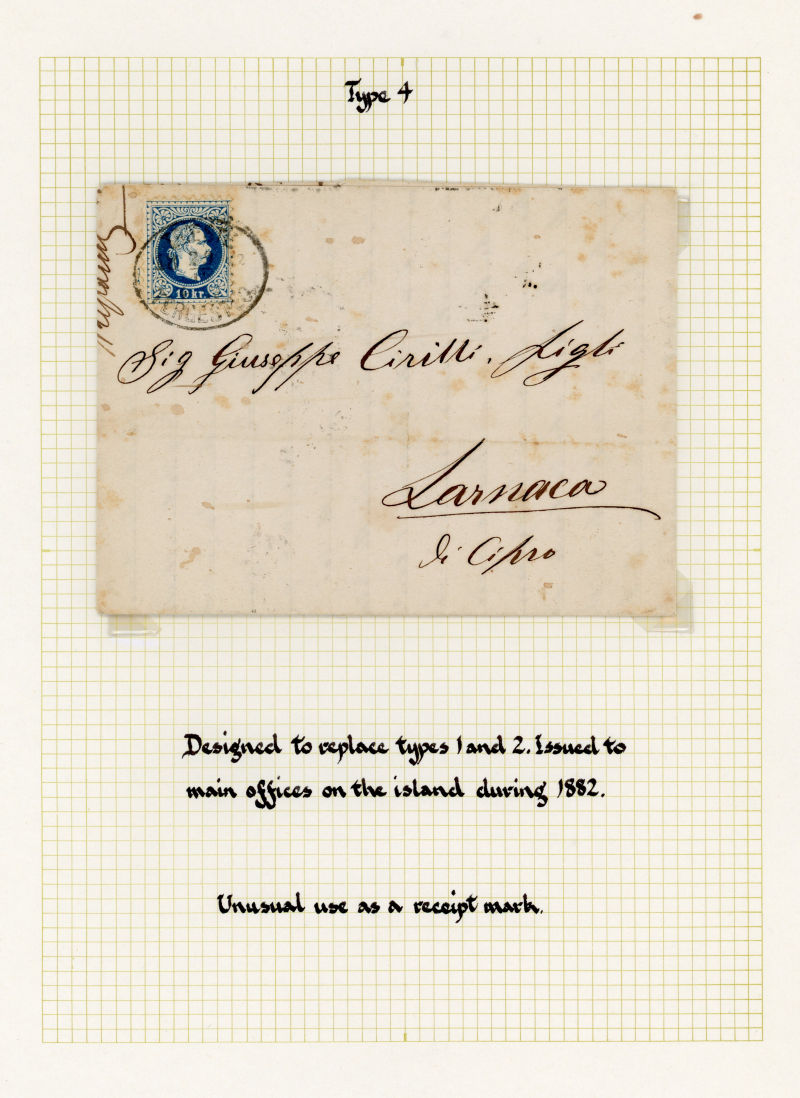 Type 4
10 kr.
Sig Giuseppe Cirilli. Figli
Larnaca
di Cipro
Designed to replace types 1 and 2. Issued to
main offices on the island during 1882.
Unusual use as a receipt mark.